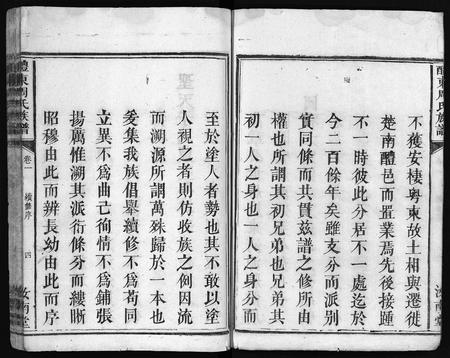 醴東周氏族譜
汝南堂
不獲安棲粤東故土相與遷徙
楚南醴邑而置業焉先後接踵
不一時彼此分居不一處迄於
今二百餘年矣雖支分而派別
實同條而共貫兹譜之修所由
權也所謂其初兄弟也兄弟其
初一人之身也一人之身分而
至於塗人者勢也其不敢以塗
人視之者則仿收族之例因流
而溯源所謂萬殊歸於一本也
爰集我族倡舉續修不爲苟同
立異不爲曲己徇情不爲鋪張
揚厲惟溯其派衍條分而縷晰
昭穆由此而辨長幼由此而序
醴東周氏族譜
卷一
續修序
四
汝南堂